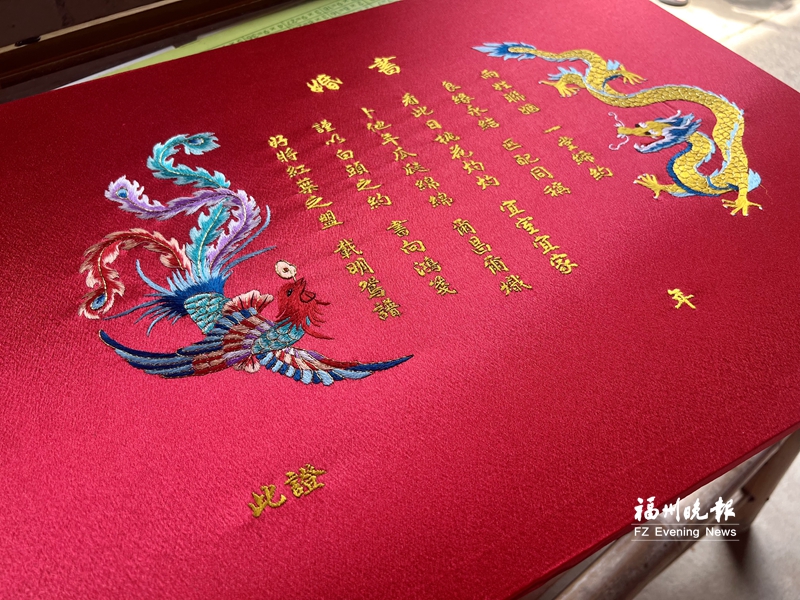 婚書
兩姓聯姻 一堂締約
良緣永結 匹配同稱
看此日桃花灼灼 宜室宜家
卜他年瓜瓞綿綿 爾昌爾熾
謹以白頭之約 書向鴻箋
好將紅葉之盟 載明鴛譜
此證
年
福州晚報
FZ Evening News